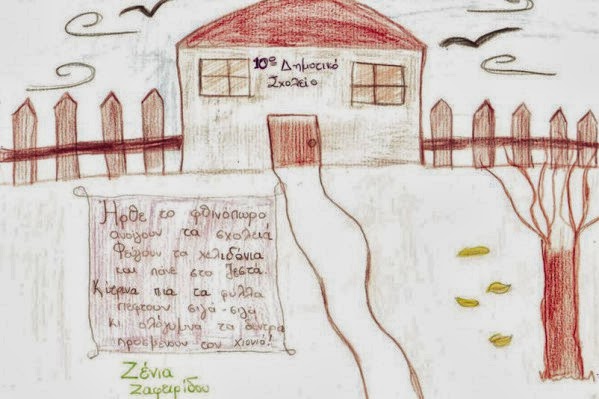 10ο Δημοτικό
Σχολείο
Ήρθε το φθινόπωρο
ανοίγουν τα σχολειά
Φεύγουν τα χελιδόνια
και πάνε στα ζεστά.
Κίτρινα πια τα φύλλα
πέφτουν σιγά-σιγά
κι ολόγυμνα τα δέντρα
προσμένουν τον χιονιά!
Ζένια
Ζαφειρίδου